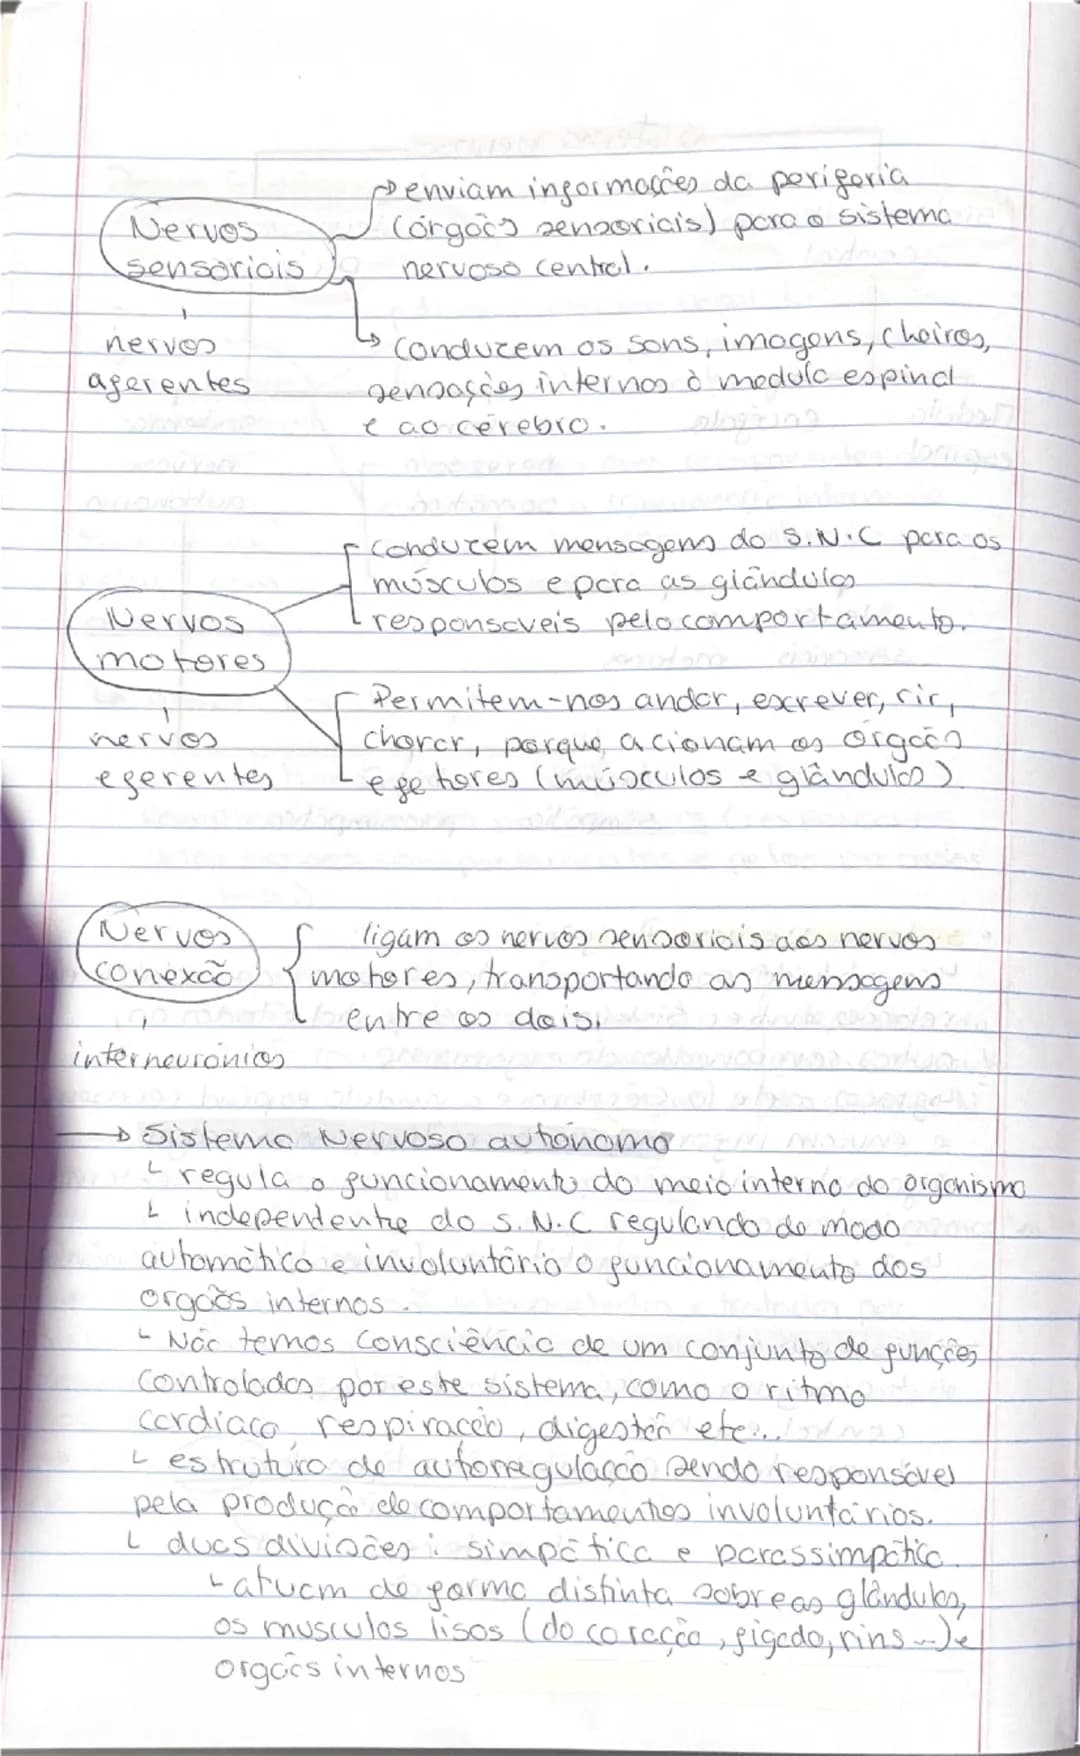 enviam informações da periferia
Nervos
sensoriais
(orgãos sensoriais) para o sistema
nervoso central.
nervos
aferentes
conduzem os sons, imagens, cheiros,
sensações internas à medula espinal
e ao cérebro.
conduzem mensagens do S.N.C para os
músculos e para as glândulas
responsaveis pelo comportamento.
Nervos
motores
nervos
eferentes
Permitem-nos andar, escrever, rir,
chorar, porque acionam os orgãos
efetores (músculos e glândulas)
Nervos
conexão
interneurónios
ligam os nervos sensoriais aos nervos
motores, transportando as mensagens
entre os dois.
→ Sistema Nervoso autónomo
└ regula o funcionamento do meio interno do organismo
└ independente do S.N.C regulando de modo
automático e involuntário o funcionamento dos
orgãos internos.
└ Não temos consciência de um conjunto de funções
controladas por este sistema, como o ritmo
cardiaco, respiração, digestão etc...
└ estrutura de autorregulação sendo responsável
pela produção de comportamentos involuntários.
└ duas divisões: simpática e parassimpática.
└ atuam de forma distinta sobre as glândulas,
os musculos lisos (do coração, figado, rins...) e
orgãos internos